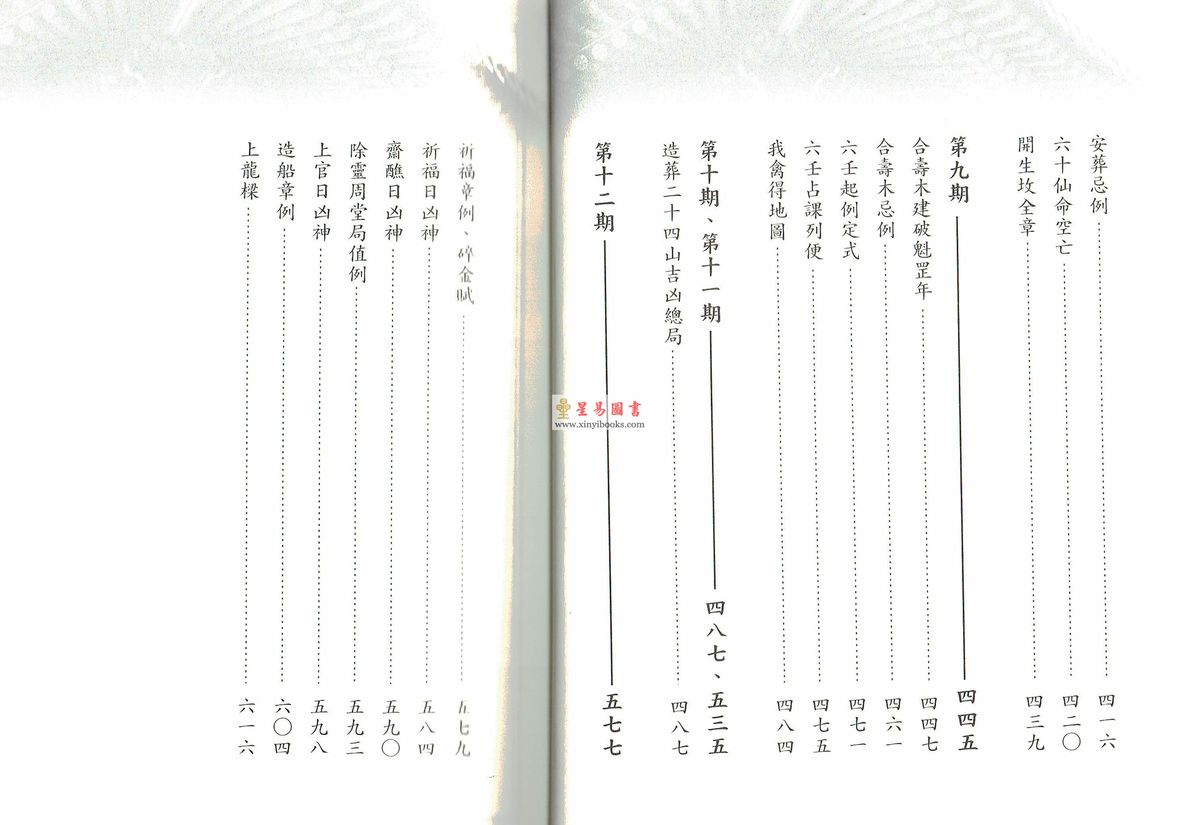 安葬忌例 四一六
六十仙命空亡 四二〇
開生坟全章 四三九
第九期 四四五
合壽木建破魁罡年 四四七
合壽木忌例 四六一
六壬起例定式 四七一
六壬占課列便 四七五
我禽得地圖 四八四
第十期、第十一期 四八七、五三五
造葬二十四山吉凶總局 四八七
第十二期 五七七
祈福章例、碎金賦 五七九
祈福日凶神 五八四
齋醮日凶神 五九〇
除靈周堂局值例 五九三
上官日凶神 五九八
造船章例 六〇四
上龍樑 六一六
星易圖書
www.xinyibooks.com